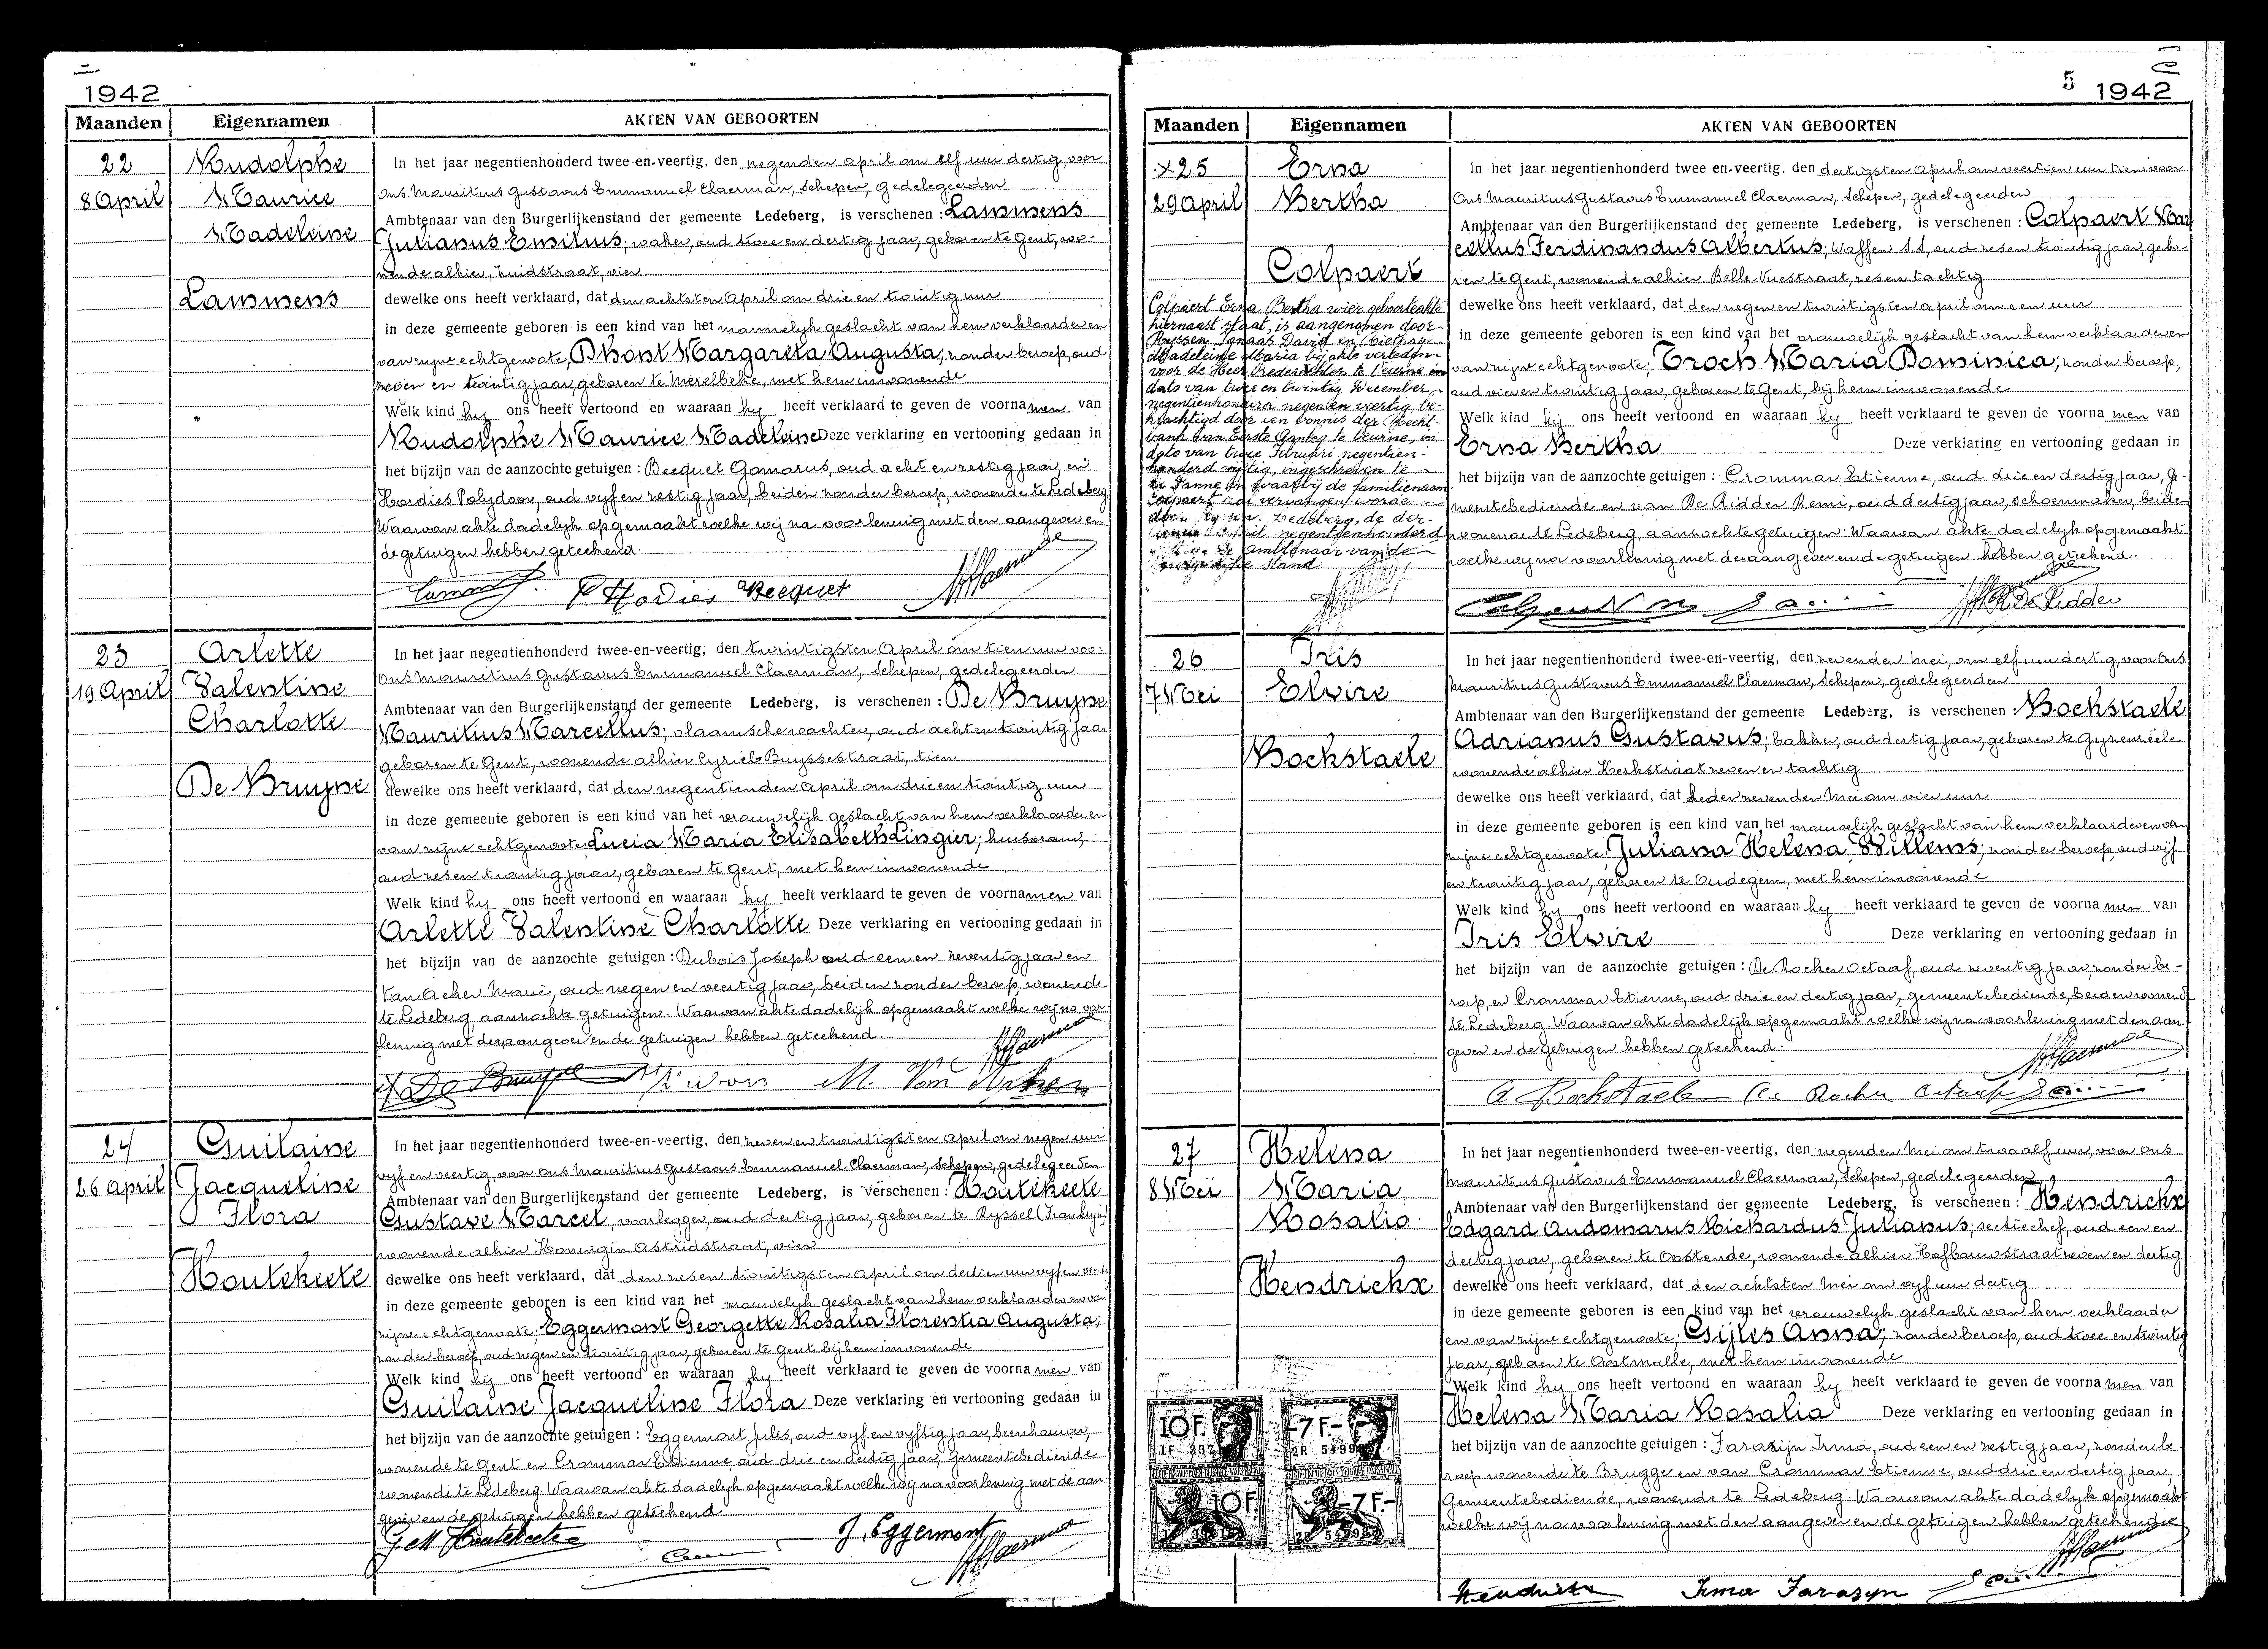 1942
Maanden Eigennamen AKTEN VAN GEBOORTEN
22
8 April
Rudolphe
Maurice
Madeleine
Lammens
In het jaar negentienhonderd twee en-veertig, den negenden april om elf uur dertig, voor
Ons Mauritius Gustavus Emmanuel Claerman, Schepen, gedelegeerden
Ambtenaar van den Burgerlijkenstand der gemeente Ledeberg, is verschenen : Lammens
Julianus Emilius, oud twee en dertig jaar, geboren te Gent, wo-
nende alhier, Zuidstraat, vier
dewelke ons heeft verklaard, dat den achtsten April om drie en twintig uur
in deze gemeente geboren is een kind van het mannelijk geslacht van hem verklaarder en
van zijne echtgenoote, Dhont Margareta Augusta, zonder beroep, oud
zeven en twintig jaar, geboren te Merelbeke, met hem inwonende
Welk kind hy ons heeft vertoond en waaraan hy heeft verklaard te geven de voornamen van
Rudolphe Maurice Madeleine Deze verklaring en vertooning gedaan in
het bijzijn van de aanzochte getuigen : Becquet Gomarus, oud acht en zestig jaar, en
Hordies Polydoor, oud vyf en zestig jaar, beiden zonder beroep, wonende te Ledeberg
Waarvan akte dadelyk opgemaakt welke wij na voorlezing met den aangever en
de getuigen hebben geteekend.
P Hodies Becquet
23
19 April
Arlette
Valentine
Charlotte
De Bruyne
In het jaar negentienhonderd twee-en-veertig, den twintigsten April om tien uur voor
Ons Mauritius Gustavus Emmanuel Claerman, Schepen, gedelegeerden
Ambtenaar van den Burgerlijkenstand der gemeente Ledeberg, is verschenen : De Bruyne
Mauritius Marcellus, vlaamsche wachter, oud acht en twintig jaar
geboren te Gent, wonende alhier Cyriel Buyssestraat, tien
dewelke ons heeft verklaard, dat den negentienden April om drie en twintig uur
in deze gemeente geboren is een kind van het vrouwelijk geslacht van hem verklaarder en
van zijne echtgenoote Lucia Maria Elisabeth Lingier, huisvrouw,
oud zes en twintig jaar, geboren te Gent, met hem inwonende
Welk kind hy ons heeft vertoond en waaraan hy heeft verklaard te geven de voornamen van
Arlette Valentine Charlotte Deze verklaring en vertooning gedaan in
het bijzijn van de aanzochte getuigen : Dubois Joseph oud een en zeventig jaar en
Van Acker Marie, oud negen en veertig jaar, beiden zonder beroep wonende
te Ledeberg aanzochte getuigen. Waarvan akte dadelijk opgemaakt welke wij na voor
lezing met den aangever en de getuigen hebben geteekend.
De Bruyne M. Van Acker
24
26 April
Guilaine
Jacqueline
Flora
Houtekeete
In het jaar negentienhonderd twee-en-veertig, den zeven en twintigsten April om negen uur
vyf en veertig, voor Ons Mauritius Gustavus Emmanuel Claerman, Schepen, gedelegeerden
Ambtenaar van den Burgerlijkenstand der gemeente Ledeberg, is verschenen : Houtekeete
Gustave Marcel, voorlegger, oud dertig jaar, geboren te Ryssel (Frankryk)
wonende alhier Koningin Astridstraat, vier
dewelke ons heeft verklaard, dat den zes en twintigsten April om dertien uur vyf en veertig
in deze gemeente geboren is een kind van het vrouwelyk geslacht van hem verklaarder en van
zijne echtgenoote, Eggermont Georgette Rosalia Florentia Augusta,
zonder beroep, oud negen en twintig jaar, geboren te Gent bij hem inwonende
Welk kind hij ons heeft vertoond en waaraan hy heeft verklaard te geven de voornamen van
Guilaine Jacqueline Flora Deze verklaring en vertooning gedaan in
het bijzijn van de aanzochte getuigen : Eggermont Jules, oud vyf en vyftig jaar, beenhouwer,
wonende te Gent en Crommar Etienne, oud drie en dertig jaar, Gemeentebediende
wonende te Ledeberg. Waarvan akte dadelyk opgemaakt welke wij na voorlezing met de aan-
gever en de getuigen hebben geteekend
G.M Houtekeete J. Eggermont
5 1942
Maanden Eigennamen AKTEN VAN GEBOORTEN
x25
29 april
Erna
Bertha
Colpaert
Colpaert Erna Bertha wier geboorteakte
hiernaast staat, is aangenomen door
Ryssen Ignaas David en
Madeleine Maria bij akte verleden
voor de Heer Vrederechter te Veurne in
dato van twee en twintig December
negentienhonderd negen en veertig, be-
krachtigd door een vonnis der Recht-
bank van Eerste Aanleg te Veurne, in
dato van twee Februari negentien-
honderd vijftig, ingeschreven te
De Panne en waarbij de familienaam
Colpaert zal vervangen worden
door Ryssen. Ledeberg, de der-
tienen April negentienhonderd
vijftig. De ambtenaar van de
Burgerlijke Stand
In het jaar negentienhonderd twee en-veertig, den dertigsten April om veertien uur tien voor
Ons Mauritius Gustavus Emmanuel Claerman, Schepen, gedelegeerden
Ambtenaar van den Burgerlijkenstand der gemeente Ledeberg, is verschenen : Colpaert Mar
cellus Ferdinandus Albertus, Waffen SS, oud zes en twintig jaar, gebo-
ren te Gent, wonende alhier Belle-Vuestraat, zes en tachtig
dewelke ons heeft verklaard, dat den negen en twintigsten april om een uur
in deze gemeente geboren is een kind van het vrouwelijk geslacht van hem verklaarder en
van zijne echtgenoote, Troch Maria Dominica, zonder beroep,
oud vier en twintig jaar, geboren te Gent, bij hem inwonende
Welk kind hij ons heeft vertoond en waaraan hy heeft verklaard te geven de voornamen van
Erna Bertha Deze verklaring en vertooning gedaan in
het bijzijn van de aanzochte getuigen : Crommar Etienne, oud drie en dertig jaar, ge-
meentebediende en van De Ridder Remi, oud dertig jaar, schoenmaker, beide
wonende te Ledeberg, aanzochte getuigen. Waarvan akte dadelyk opgemaakt
welke wij na voorlezing met den aangever en de getuigen hebben geteekend.
R. De Ridder
26
7 Mei
Iris
Elvire
Bockstaele
In het jaar negentienhonderd twee-en-veertig, den zevenden Mei, om elf uur dertig, voor Ons
Mauritius Gustavus Emmanuel Claerman, Schepen, gedelegeerden
Ambtenaar van den Burgerlijkenstand der gemeente Ledeberg, is verschenen : Bockstaele
Adrianus Gustavus, bakker, oud dertig jaar, geboren te Gyzenzeele
wonende alhier Kerkstraat zeven en tachtig
dewelke ons heeft verklaard, dat heden zevenden Mei om vier uur
in deze gemeente geboren is een kind van het vrouwelijk geslacht van hem verklaarder en van
zijne echtgenoote, Juliana Helena Willems, zonder beroep, oud vijf
en twintig jaar, geboren te Oudegem, met hem inwonende
Welk kind hy ons heeft vertoond en waaraan hy heeft verklaard te geven de voornamen van
Iris Elvire Deze verklaring en vertooning gedaan in
het bijzijn van de aanzochte getuigen : De Rocker Octaaf, oud zeventig jaar, zonder be-
roep, en Crommar Etienne, oud drie en dertig jaar, gemeentebediende, beiden wonende
te Ledeberg. Waarvan akte dadelyk opgemaakt welke wij na voorlezing met den aan-
gever en de getuigen hebben geteekend.
A Bockstaele De Rocker Octaaf
27
8 Mei
Helena
Maria
Rosalia
Hendrickx
In het jaar negentienhonderd twee-en-veertig, den negenden Mei om twaalf uur, voor ons
Mauritius Gustavus Emmanuel Claerman, Schepen, gedelegeerden
Ambtenaar van den Burgerlijkenstand der gemeente Ledeberg, is verschenen : Hendrickx
Edgard Audomarus Richardus Julianus, sectie chef, oud een en
dertig jaar, geboren te Oostende, wonende alhier Hofbouwstraat zeven en dertig
dewelke ons heeft verklaard, dat den achtsten Mei om vyf uur dertig
in deze gemeente geboren is een kind van het vrouwelyk geslacht van hem verklaarder
en van zijne echtgenoote, Gijles Anna, zonder beroep, oud twee en twintig
jaar, geboren te Oostmalle, met hem inwonende
Welk kind hy ons heeft vertoond en waaraan hy heeft verklaard te geven de voornamen van
Helena Maria Rosalia Deze verklaring en vertooning gedaan in
het bijzijn van de aanzochte getuigen : Farazijn Irma, oud een en zestig jaar, zonder be-
roep wonende te Brugge en van Crommar Etienne, oud drie en dertig jaar,
Gemeentebediende, wonende te Ledeberg. Waarvan akte dadelyk opgemaakt
welke wij na voorlezing met den aangever en de getuigen hebben geteekend
10F. -7F.-
10F. -7F.-
Hendrickx Irma Farazyn